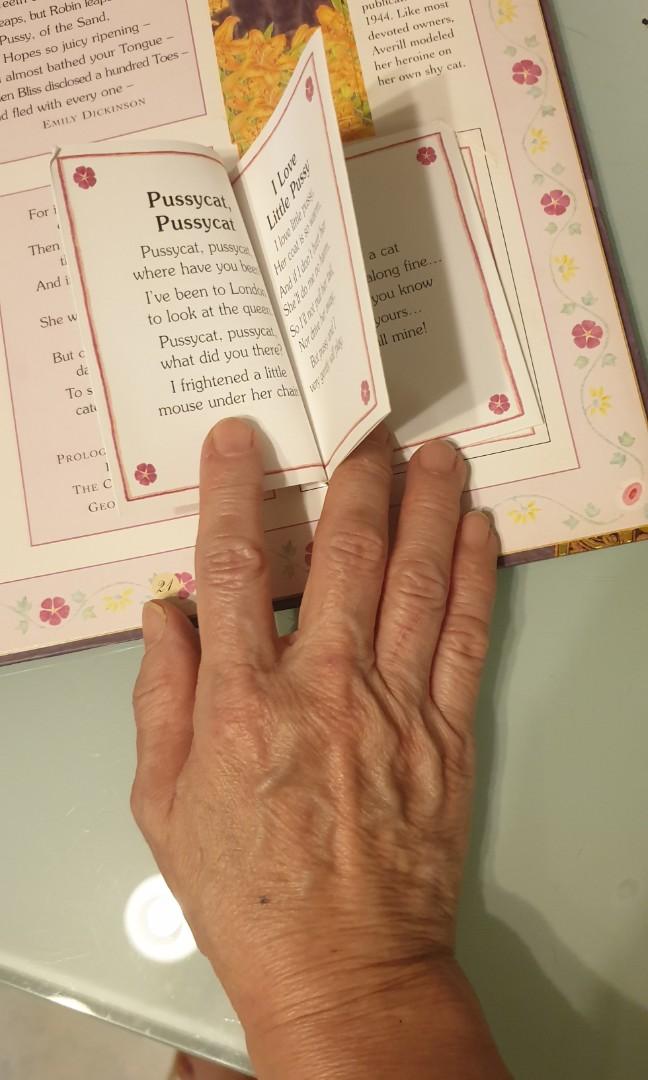 eaps, but Robin leap
Pussy, of the Sand,
Hopes so juicy ripening –
almost bathed your Tongue –
en Bliss disclosed a hundred Toes –
d fled with every one –
EMILY DICKINSON
public
1944. Like most
devoted owners,
Averill modeled
her heroine on
her own shy cat.
For
Then
And i
She w
But c
da
To s
cat
PROLOG
THE C
GEO
21
Pussycat,
Pussycat
Pussycat, pussycat,
where have you bee
I've been to London
to look at the queen.
Pussycat, pussycat,
what did you there?
I frightened a little
mouse under her chair
I Love
Little Pussy
I love little pussy,
Her coat is so warm,
And if I don't hurt her
She'll do me no harm.
So I'll not pull her tail,
Nor drive her away,
But pussy and I
very gently will play.
a cat
along fine...
you know
yours...
ll mine!